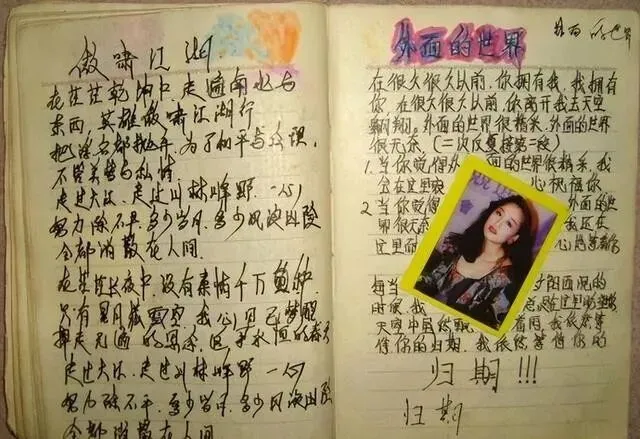 傲啸江湖
在茫茫乾坤中走遍南北与
东西,英雄傲啸江湖行
把 名都抛弃,为了和平与公理,
不管关势与私情
走过大江,走过山林峰野,一心
努力除不平,多少岁月,多少风浪凶险
全都消散在人间.
在茫茫长夜中,没有柔情千万
只有星月 夜空,我心
走 无 的
走过大江,走过山林峰野 一心
努力除不平,多少岁月,多少风浪凶险
全都消散在人间
外面的世界
外面的世界
在很久很久以前,你拥有我,我拥有
你,在很久很久以前,你离开我去天空
翱翔.外面的世界很精采,外面的世界
很无奈 (二次反复接第三段)
1. 当你觉得外 面的世界很精采,我
会在这里衷 心祝福你
2. 当你觉得 外面的世
界很无奈 我还在
这里耐 心
每当 夕阳西沉的
时候,我 在这里盼望
天空中虽然飘 着雨,我依然等
待你的归期,我依然等待你的
归期!!!
归期